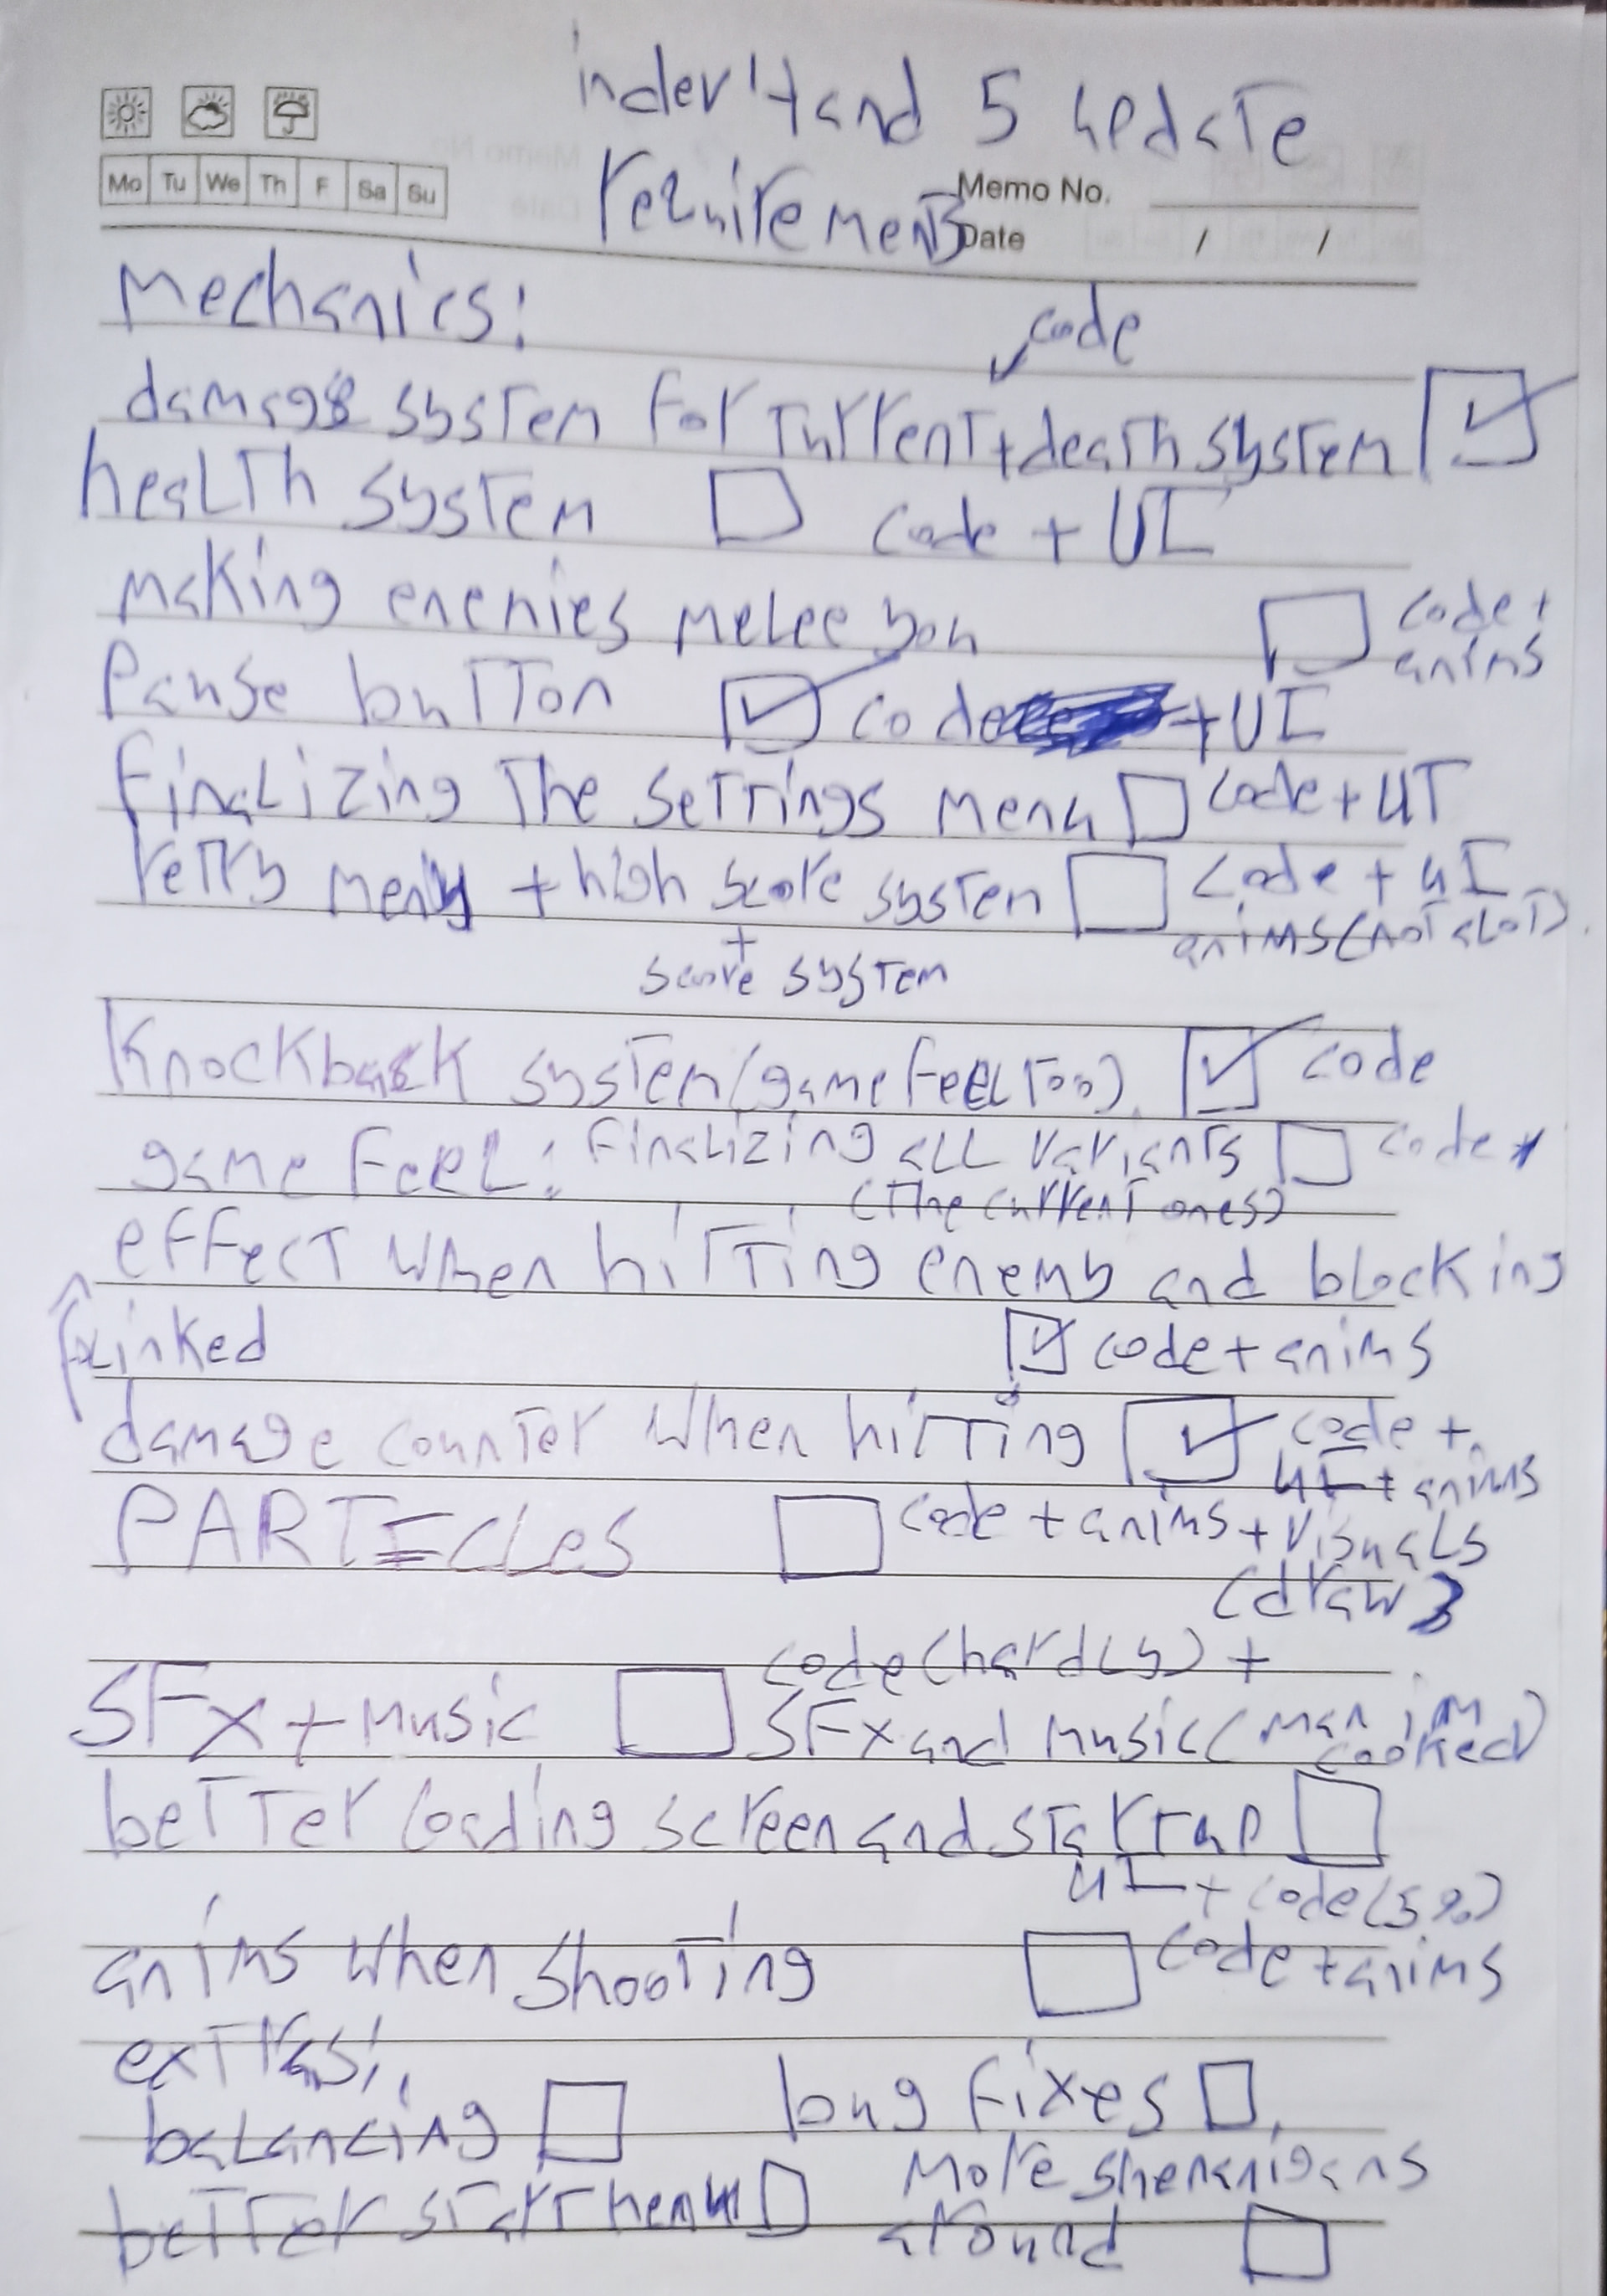 inder'tand 5 update
requirements
Mo Tu We Th F Sa Su
Memo No.
Date / /
mechanics:
code
damage system for turrent + death system
health system code + UI
making enenies melee you code + anims
Pause button code + UI
finalizing the settings menu code + UI
retry menu + high score system code + UI
anims (not alot).
+
score system
Knockback system (game feel too). code
game feel: finalizing all variants code
(the current ones)
effect when hitting enemy and blocking
linked code + anims
damage counter when hitting code +
UI + anims
PARTIcLes code + anims + visuals
(draw)
code (hardly) +
SFx + music SFx and music (man im
cooked)
better loading screen and startup
UI + code (5%)
anims when shooting code + anims
extras:
balancing bug fixes
better start menu more shenanigans
around